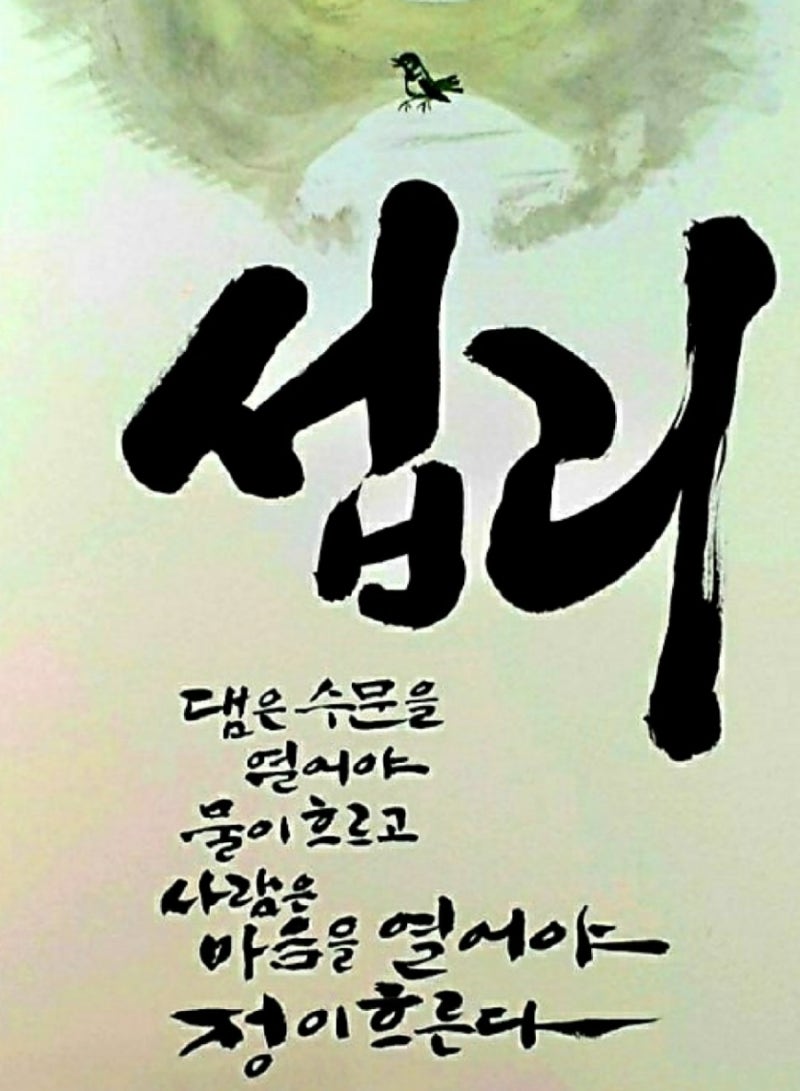 섭리
댐은 수문을
열어야
물이 흐르고
사람은
마음을 열어야
정이 흐른다